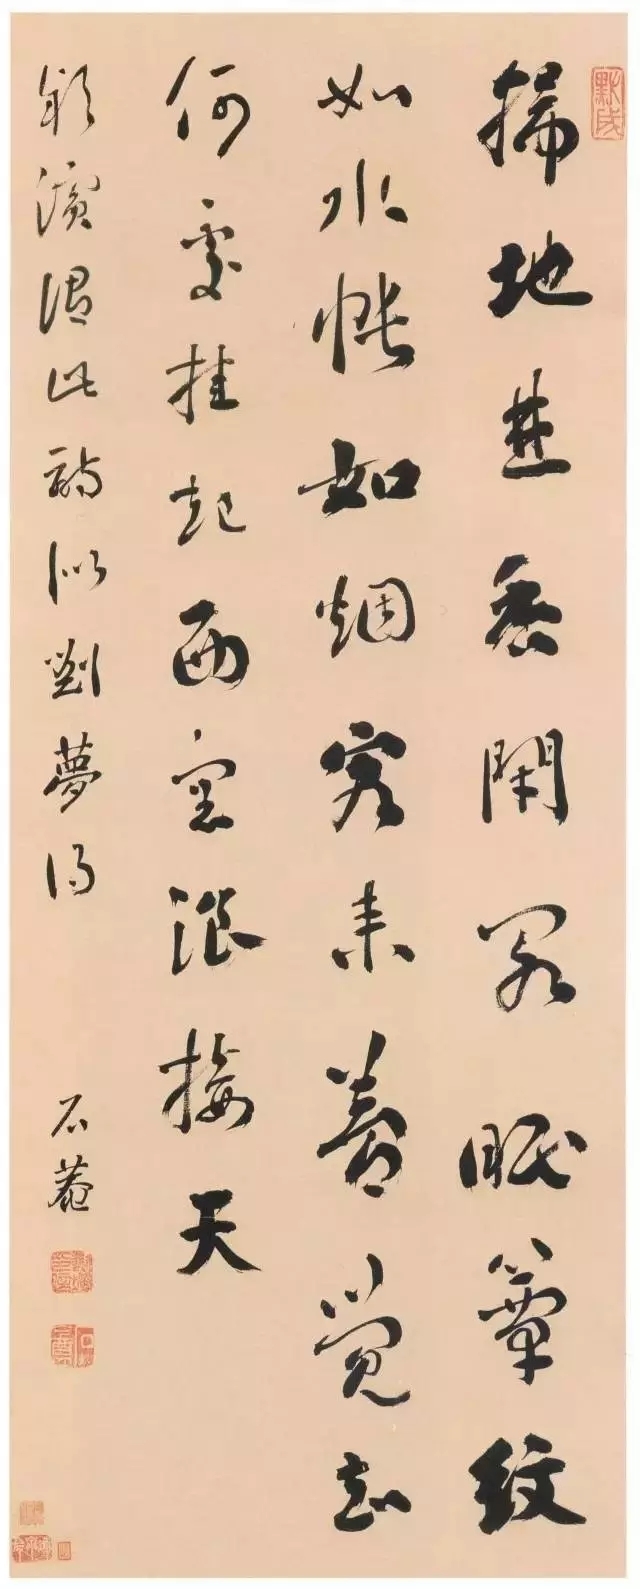 掃地焚香閉閣眠簟紋
如水帳如烟客来夢覺知
何處挂起西窗浪接天
潁濱謂此詩似劉夢得
石菴